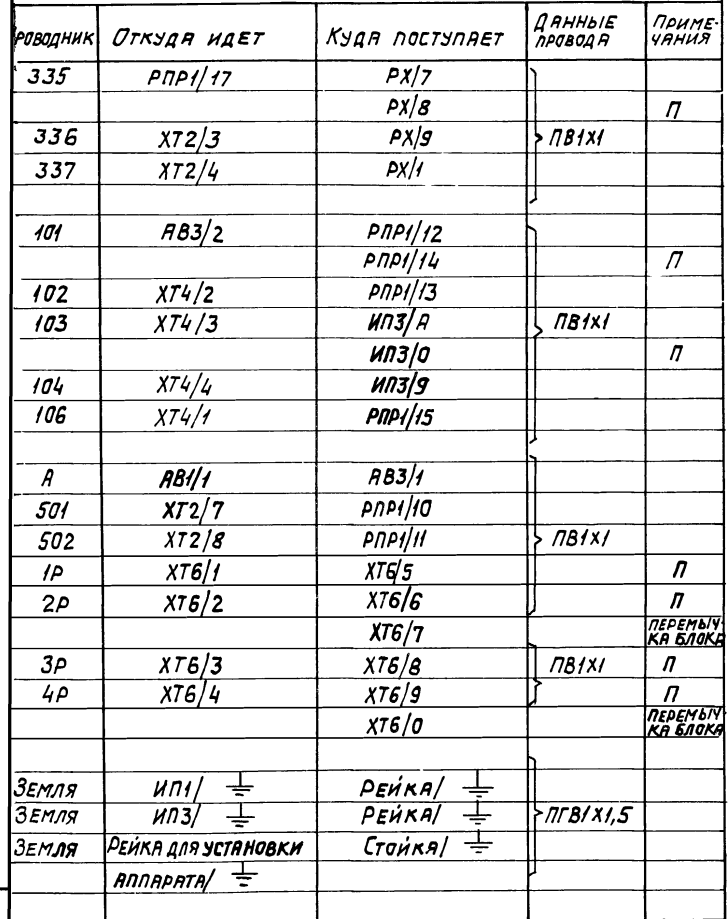 роводник Откуда идет Куда поступает Данные провода Приме-чания
335 РПР1/17 РХ/7
РХ/8 П
336 ХТ2/3 РХ/9 ПВ1х1
337 ХТ2/4 РХ/1
101 АВ3/2 РПР1/12
РПР1/14 П
102 ХТ4/2 РПР1/13
103 ХТ4/3 ИП3/А ПВ1х1
ИП3/0 П
104 ХТ4/4 ИП3/9
106 ХТ4/1 РПР1/15
А АВ1/1 АВ3/1
501 ХТ2/7 РПР1/10
502 ХТ2/8 РПР1/11 ПВ1х1
1Р ХТ6/1 ХТ6/5 П
2Р ХТ6/2 ХТ6/6 П
ХТ6/7 Перемыч-ка блока
3Р ХТ6/3 ХТ6/8 ПВ1х1 П
4Р ХТ6/4 ХТ6/9 П
ХТ6/0 Перемыч-ка блока
Земля ИП1/ Рейка/
Земля ИП3/ Рейка/ ПГВ1х1,5
Земля Рейка для установки Стойка/
аппарата/